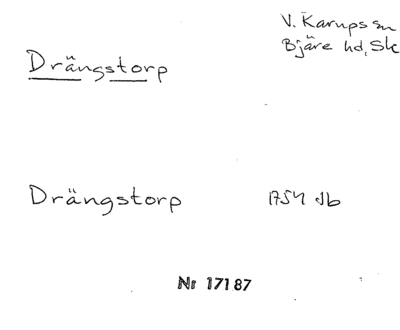 V. Karups sn
Bjäre hd, Sk
Drängstorp
Drängstorp 1754 Jb
Nr 17187